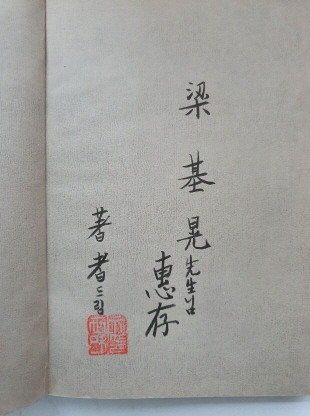 梁基晃先生님
惠存
著者드림